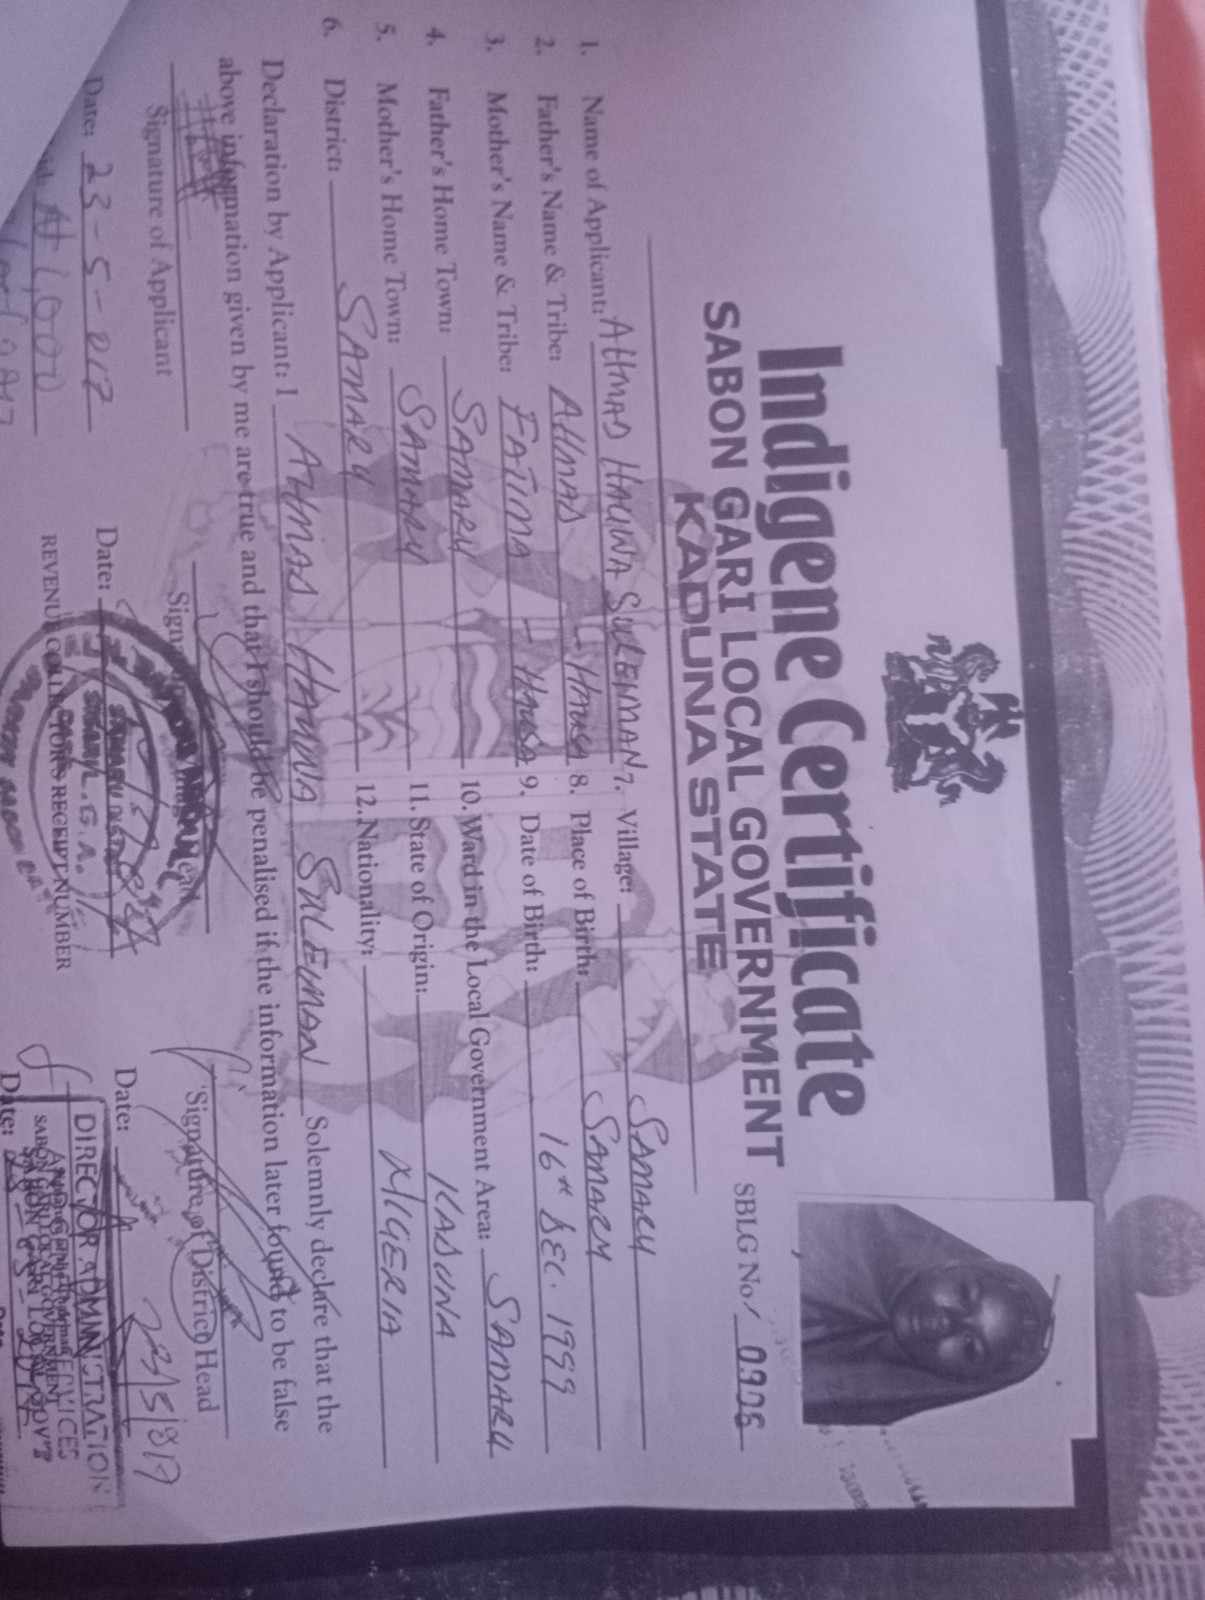 Indigene Certificate
SABON GARI LOCAL GOVERNMENT
KADUNA STATE
SBLG No/ 0906
1. Name of Applicant: AHMAD HAUWA SULEIMAN
2. Father's Name & Tribe: AHMAD - HAUSA
3. Mother's Name & Tribe: FATIMA - HAUSA
4. Father's Home Town: SAMARU
5. Mother's Home Town: SAMARU
6. District: SAMARU
7. Village: SAMARU
8. Place of Birth: SAMARU
9. Date of Birth: 16th DEC. 1999
10. Ward in the Local Government Area: SAMARU
11. State of Origin: KADUNA
12. Nationality: NIGERIA
Declaration by Applicant: I AHMAD HAUWA SULEMAN Solemnly declare that the
above information given by me are true and that I should be penalised if the information later found to be false
Signature of Applicant
Date: 23-5-017
Date:
REVENUE COLLECTORS RECEIPT NUMBER
Signature of District Head
Date: 23/5/017
DIRECTOR ADMINISTRATION
Date: